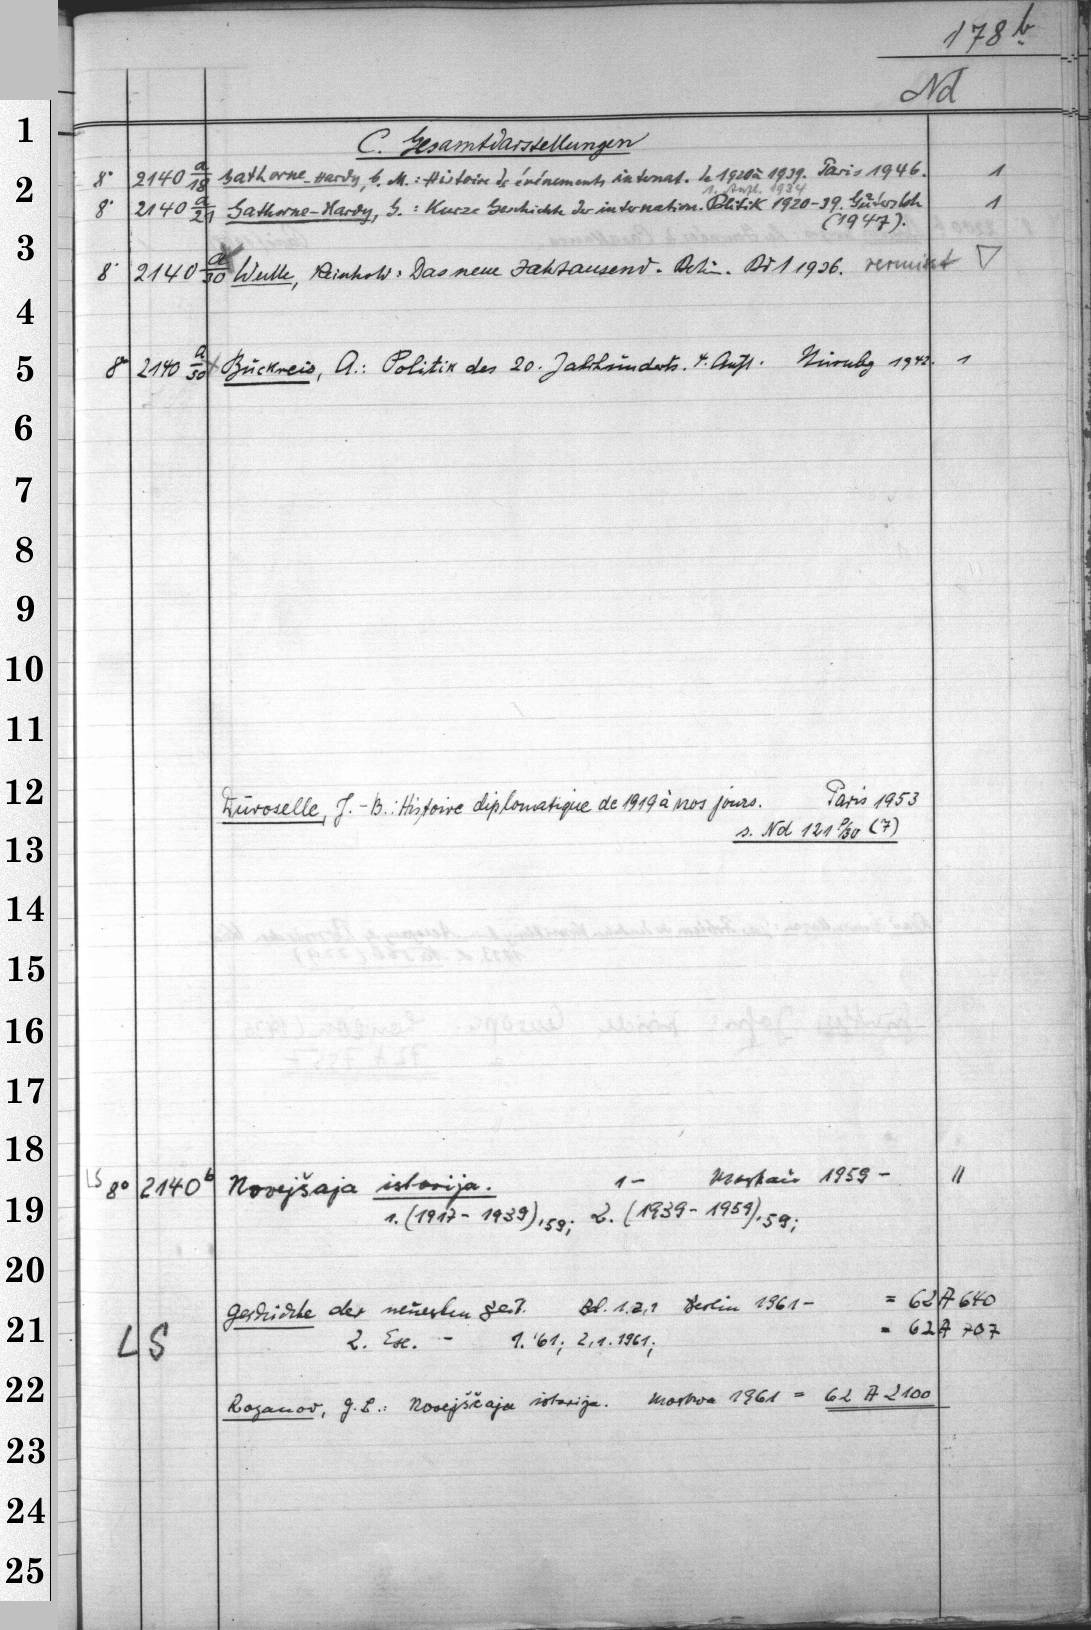 178 b
Nd
1
C. Gesamtdarstellungen
2
8° 2140 a/18 Gathorne-Hardy, G. M.: Histoire de événements internat. de 1920 à 1939. Paris 1946. 1
1. Aufl. 1934
8° 2140 a/21 Gathorne-Hardy, G.: Kurze Geschichte der internation. Politik 1920-39. Gütersloh 1
(1947).
3
8° 2140 a/30 Wulle, Reinhold: Das neue Jahrtausend. Berlin. Bd 1 1926. vermisst
4
5
8° 2140 a/30 Bückreis, A.: Politik des 20. Jahrhunderts. 4. Aufl. Nürnbg 1942. 1
6
7
8
9
10
11
12
Düroselle, J.-B.: Histoire diplomatique de 1919 à nos jours. Paris 1953
s. Nd 121 p/30 (7)
13
14
15
16
17
18
LS 8° 2140 b Novejšaja istorija. 1- Moskau 1959- 11
19
1. (1917-1939), '59; 2. (1939-1959) '59;
20
Geschichte der neuesten Zeit. Bd. 1. 2,1 Berlin 1961- = 62 A 640
21
LS
2. Ex. - 1. '61; 2,1. 1961; = 62 A 707
22
Rozanov, G. L.: Novejščaja istorija. Moskva 1961 = 62 A 2100
23
24
25